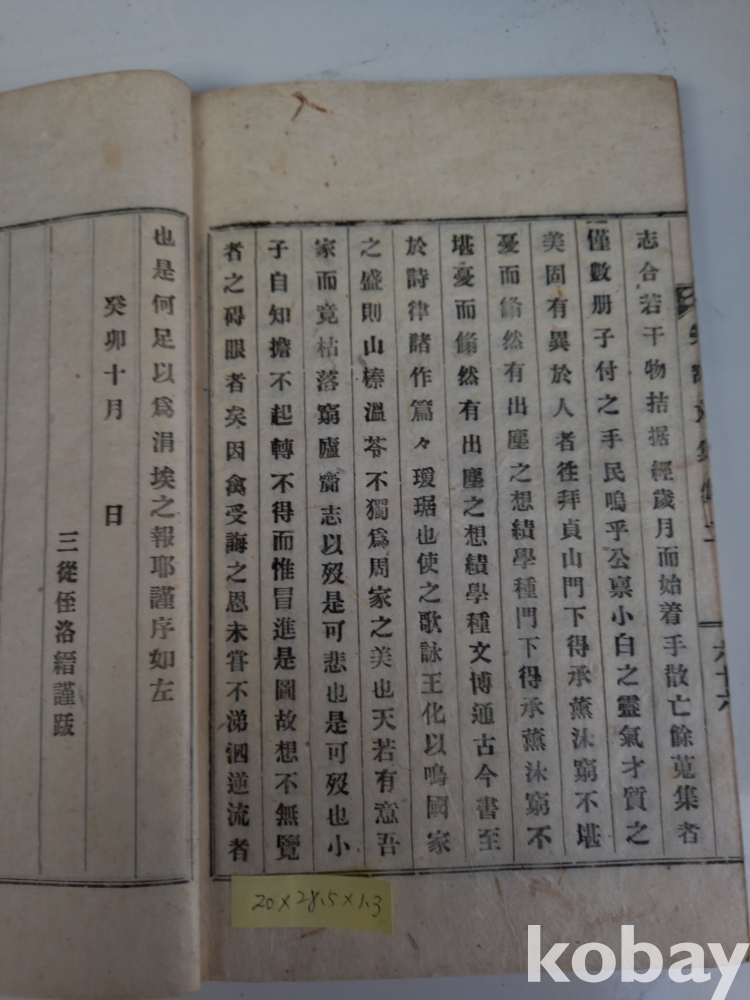 志合若干物拮据經歲月而始着手散亡餘蒐集者
僅數册子付之手民嗚乎公禀小白之靈氣才質之
美固有異於人者徃拜貞山門下得承薰沐窮不堪
憂而翛然有出塵之想績學種門下得承薰沐窮不
堪憂而翛然有出塵之想績學種文博通古今書至
於詩律諸作篇々瓊琚也使之歌詠王化以鳴國家
之盛則山榛溫苓不獨爲周家之美也天若有意吾
家而竟枯落窮廬齎志以歿是可悲也是可歿也小
子自知擔不起轉不得而惟冒進是圖故想不無覽
者之碍眼者矣因禽受誨之恩未嘗不涕泗逆流者
也是何足以爲涓埃之報耶謹序如左
癸卯十月 日
三從侄洛縉謹跋
六十六
20×28.5×1.3
kobay